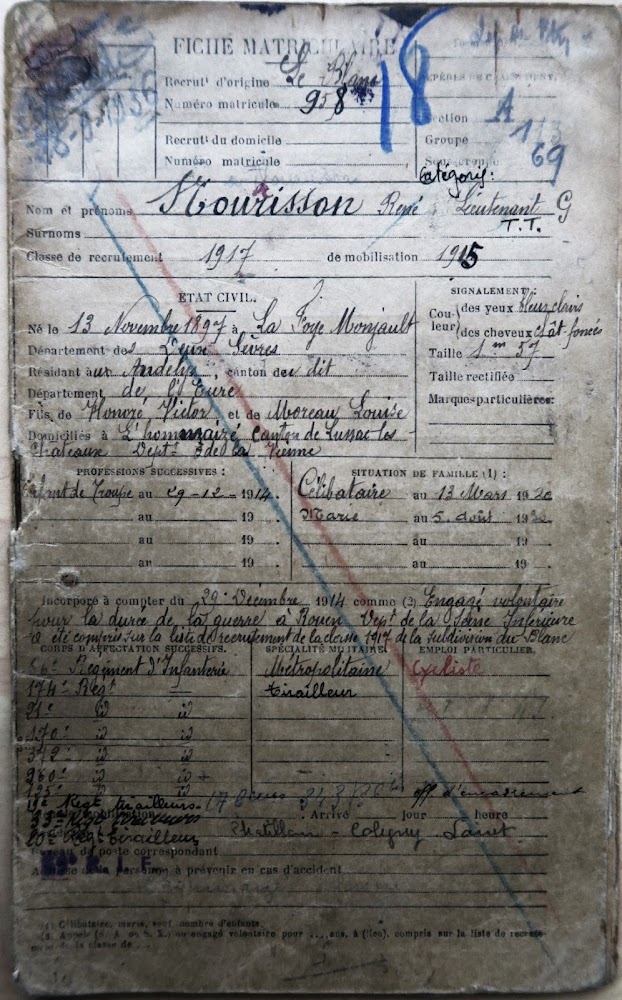 FICHE MATRICULAIRE
Recrut.t d'origine Le Blanc
Numéro matricule 958
18
Recrut.t du domicile
Numéro matricule
Section A
Groupe 1/3
69
Catégorie:
Nom et prénoms Nourisson René Lieutenant G
T.T.
Surnoms
Classe de recrutement 1917 de mobilisation 1915
ÉTAT CIVIL.
Né le 13 Novembre 1897 à La Foye Monjault
Département des Deux Sèvres
Résidant aux Andelys, canton du dit
Département de l'Eure
Fils de Honoré, Victor et de Moreau Louise
Domiciliés à L'hommaizé, Canton de Lussac les
Chateaux Dept. de la Vienne
SIGNALEMENT:
Couleur des yeux bleus clairs
des cheveux chât-foncés
Taille 1m 57
Taille rectifiée
Marques particulières:
PROFESSIONS SUCCESSIVES:
Enfant de Troupe au 29-12-1914
au 19
au 19
au 19
SITUATION DE FAMILLE (1):
Célibataire au 13 Mars 1920
Marié au 5 août 1930
au 19
au 19
Incorporé à compter du 29 Décembre 1914 comme (2) Engagé volontaire
pour la durée de la guerre à Rouen Dept de la Seine Inférieure
a été compris sur la liste de recrutement de la classe 1917 de la subdivision du Blanc
CORPS D'AFFECTATION SUCCESSIFS.
Régiment d'Infanterie
174e Régt
21e id id
170e id id
372e id id
260e id id
Régt tirailleurs
Régt Tirailleurs
SPÉCIALITÉ MILITAIRE.
Métropolitaine
tirailleur
EMPLOI PARTICULIER.
Cycliste
off d'encadrement
Arrivé jour heure
Chatillon-Coligny Loiret
Bureau de poste correspondant
Adresse de la personne à prévenir en cas d'accident
(1) Célibataire, marié, veuf, nombre d'enfants.